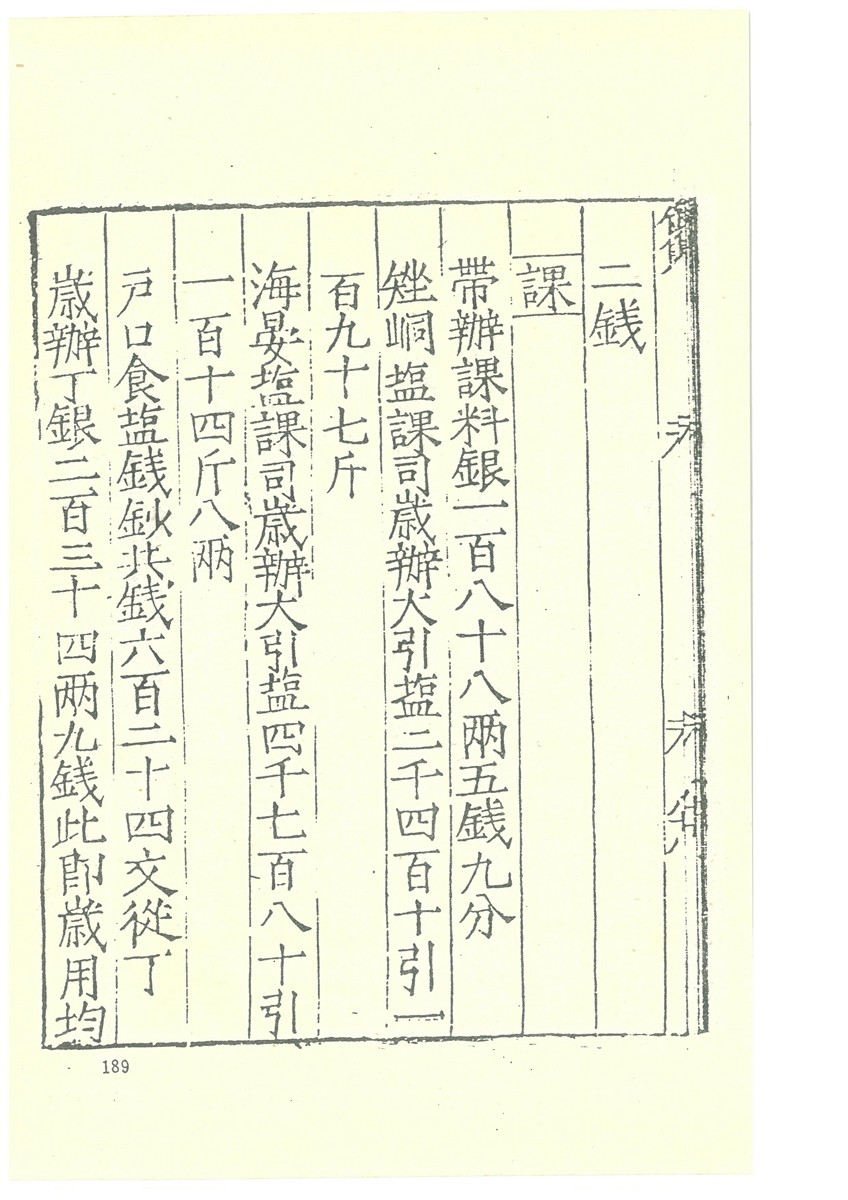 二錢
課
帶辦課料銀一百八十八兩五錢九分
矬峒塩課司歲辦大引塩二千四百十引一
百九十七斤
海晏塩課司歲辦大引塩四千七百八十引
一百十四斤八兩
戸口食塩錢鈔共錢六百二十四文從丁
歲辦丁銀二百三十四兩九錢此即歲用均
189